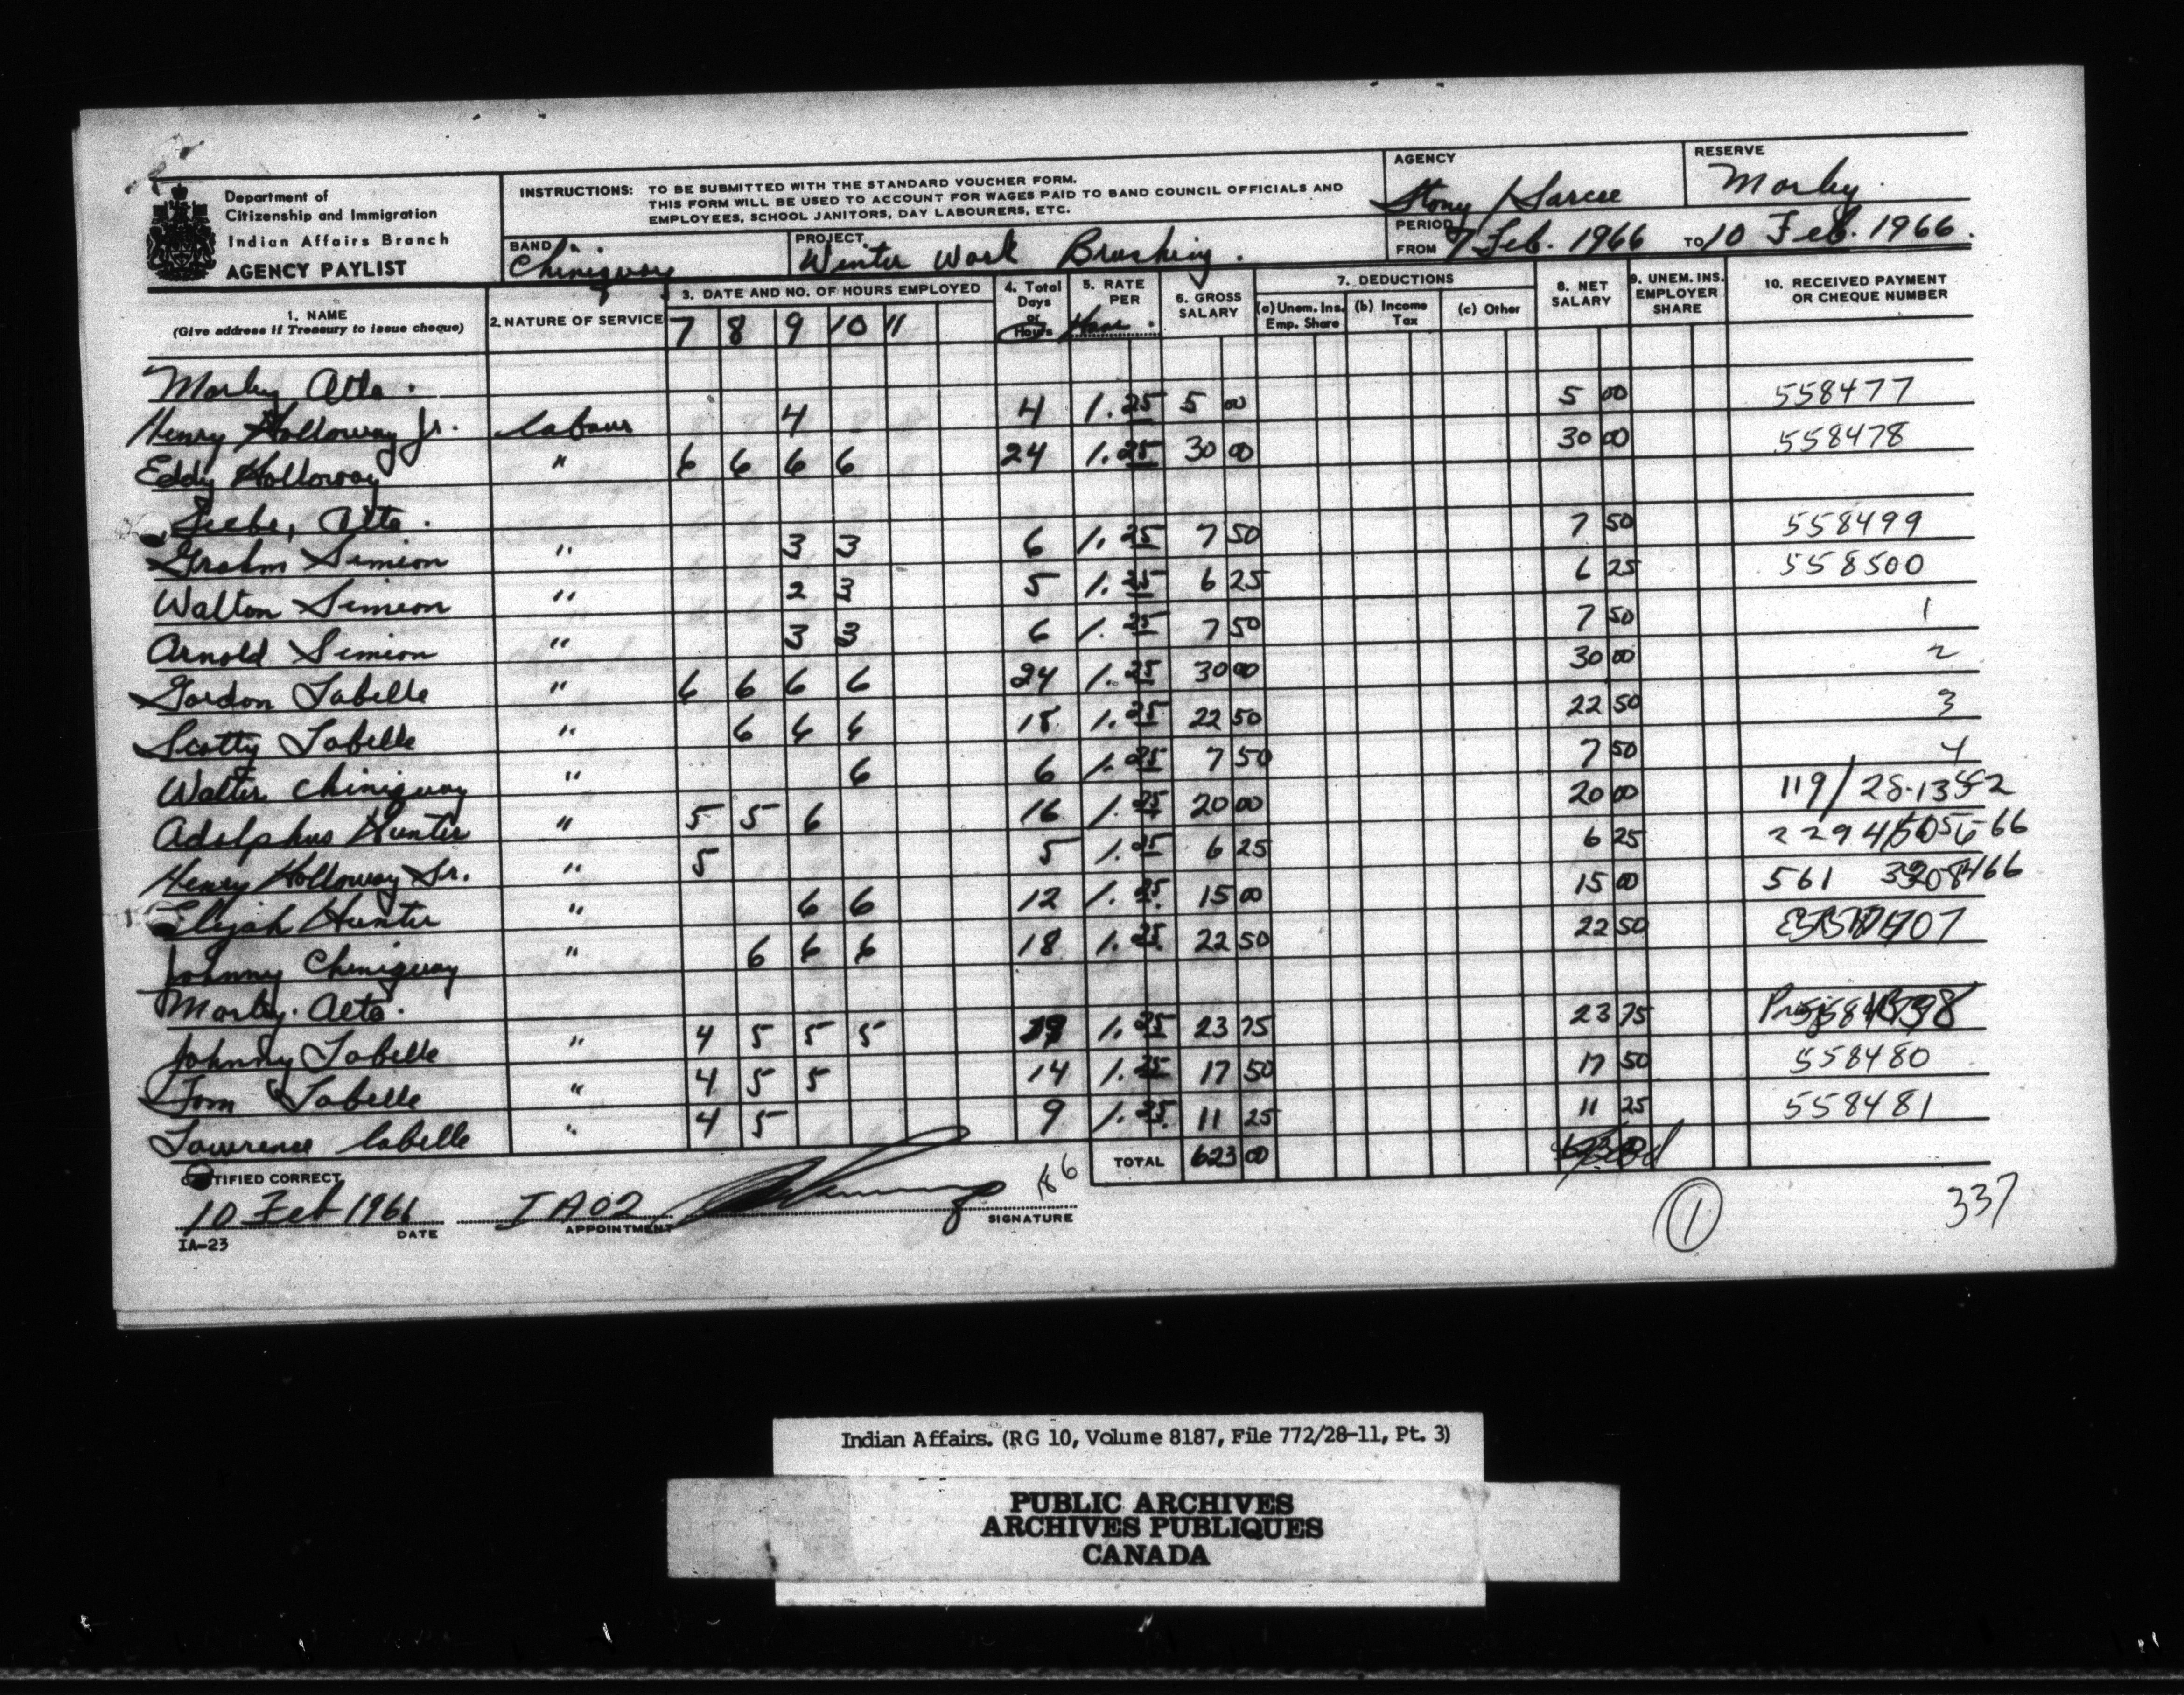 Department of
Citizenship and Immigration
Indian Affairs Branch
AGENCY PAYLIST
INSTRUCTIONS: TO BE SUBMITTED WITH THE STANDARD VOUCHER FORM.
THIS FORM WILL BE USED TO ACCOUNT FOR WAGES PAID TO BAND COUNCIL OFFICIALS AND
EMPLOYEES, SCHOOL JANITORS, DAY LABOURERS, ETC.
AGENCY
Stony / Sarcee
RESERVE
Morley.
BAND
Chiniquay
PROJECT
Winter Work Brushing.
PERIOD
FROM 7 Feb. 1966 TO 10 Feb. 1966.
1. NAME
(Give address if Treasury to issue cheque)
2. NATURE OF SERVICE
3. DATE AND NO. OF HOURS EMPLOYED
7 8 9 10 11
4. Total Days or Hours
5. RATE PER Hour.
6. GROSS SALARY
7. DEDUCTIONS
(a) Unem. Ins. Emp. Share
(b) Income Tax
(c) Other
8. NET SALARY
9. UNEM. INS. EMPLOYER SHARE
10. RECEIVED PAYMENT OR CHEQUE NUMBER
Morley Alta.
Henry Holloway Jr. labour 4 4 1.25 5 00 5 00 558477
Eddy Holloway " 6 6 6 6 24 1.25 30 00 30 00 558478
Seebe, Alta.
Grahm Simeon " 3 3 6 1.25 7 50 7 50 558499
Walton Simeon " 2 3 5 1.25 6 25 6 25 558500
Arnold Simeon " 3 3 6 1.25 7 50 7 50 1
Gordon Labelle " 6 6 6 6 24 1.25 30 00 30 00 2
Scotty Labelle " 6 6 6 18 1.25 22 50 22 50 3
Walter Chiniquay " 6 6 1.25 7 50 7 50 4
Adolphus Hunter " 5 5 6 16 1.25 20 00 20 00 119/28-13
Henry Holloway Sr. " 5 5 1.25 6 25 6 25
Elijah Hunter " 6 6 12 1.25 15 00 15 00 561
Johnny Chiniquay " 6 6 6 18 1.25 22 50 22 50
Morley. Alta.
Johnny Labelle " 4 5 5 5 19 1.25 23 75 23 75
Tom Labelle " 4 5 5 14 1.25 17 50 17 50 558480
Lawrence Labelle " 4 5 9 1.25 11 25 11 25 558481
TOTAL 623 00
CERTIFIED CORRECT
10 Feb 1966 IA02
DATE APPOINTMENT SIGNATURE
IA-23
1
337
Indian Affairs. (RG 10, Volume 8187, File 772/28-11, Pt. 3)
PUBLIC ARCHIVES
ARCHIVES PUBLIQUES
CANADA